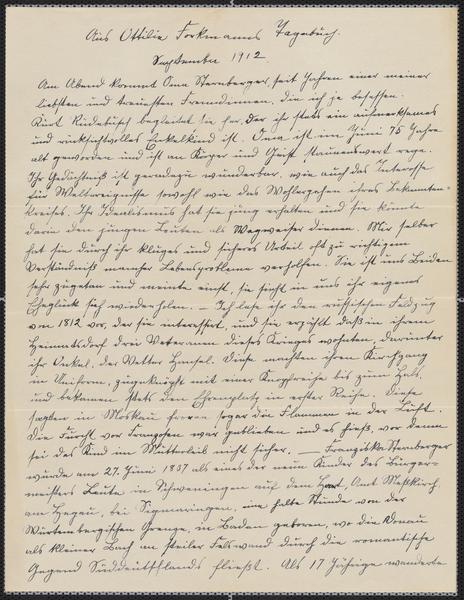 Aus Ottilie Forkmanns Tagebuch.
September 1912.
Am Abend kommt Oma Sternberger, seit Jahren einer meiner
liebsten und treuesten Freundinnen, die ich je besessen.
Kurt Rüdebisch begleitet sie her, der ihr stets ein aufmerksames
und rücksichtvolles Enkelkind ist. Oma ist im Juni 75 Jahre
alt geworden und ist an Körper und Geist staunenswert rege.
Ihr Gedächtniß ist geradezu wunderbar, wie auch das Interesse
für Weltereignisse sowohl wie das Wohlergehen ihres Bekannten-
kreises. Ihr Idealismus hat sie jung erhalten und sie könnte
darin den jungen Leuten als Wegweiser dienen. Mir selber
hat sie durch ihr kluges und sicheres Urteil oft zu richtigem
Verständniß mancher Lebensprobleme verholfen. Sie ist uns Beiden
sehr zugetan und meinte einst, sie sieht in uns ihr eigenes
Eheglück sich wiederholen. — Ich lese ihr den russischen Feldzug
von 1812 vor, der sie interessirt, und sie erzählt daß in ihrem
Heimatsdorf drei Veteranen dieses Krieges wohnten, darunter
ihr Onkel, der Vetter Hansel. Diese machten ihren Kirchgang
in Uniform, zugeknöpft mit einer Knopfreihe bis zum Hals
und bekamen stets den Ehrenplatz in erster Reihe. Diese
sagten in Moskau froren sogar die Flammen in der Luft.
Die Furcht vor Franzosen war geblieben und es hieß, vor denen
sei das Kind im Mutterleib nicht sicher. — Franziska Sternberger
wurde am 27. Juni 1837 als eines der neun Kinder des Bürger-
meisters Leute in Schweningen auf dem Hart, Amt Meßkirch,
am Hegau, bei Sigmaringen, eine halbe Stunde von der
Würtenbergischen Grenze, in Baden geboren, wo die Donau
als kleiner Bach an steiler Felswand durch die romantische
Gegend Süddeutschlands fließt. Als 17 Jährige wanderte